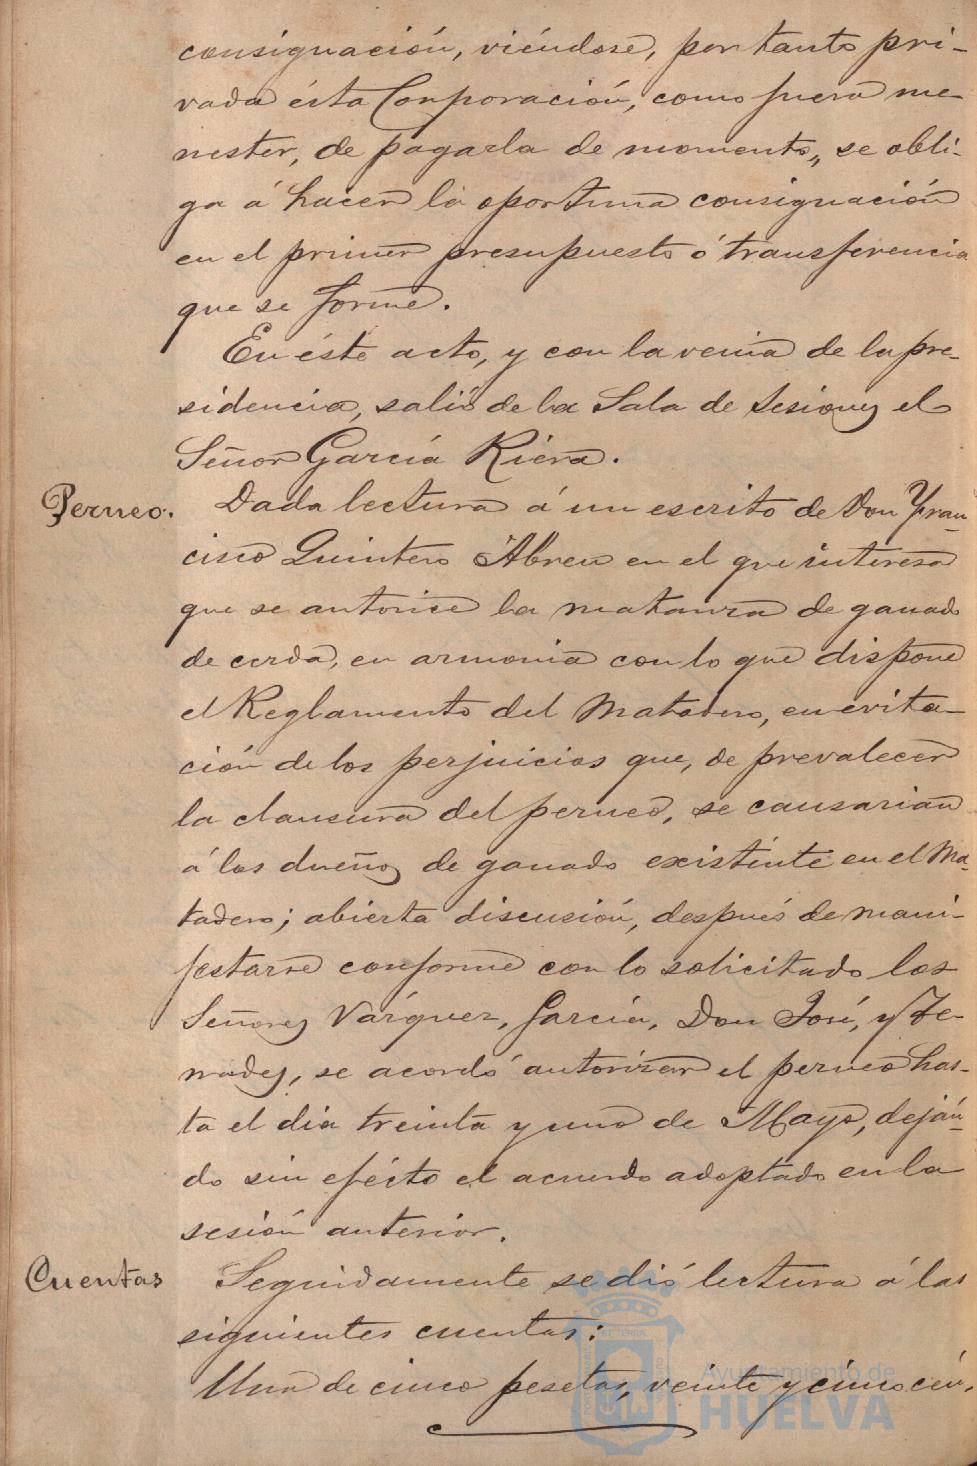 consignación, viéndose, por tanto pri-
vada ésta Corporación, como fuera me-
nester, de pagarla de momento,, se obli-
ga á hacer la oportuna consignación
en el primer presupuesto ó transferencia
que se forme.
En éste acto, y con la venia de la pre-
sidencia, salió de la Sala de Sesiones el
Señor García Riera.
Perneo. Dada lectura á un escrito de Don Fran-
cisco Quintero Abreu en el que interesa
que se autorice la matanza de ganado
de cerda, en armonia con lo que dispone
el Reglamento del Matadero, en evita-
ción de los perjuicios que, de prevalecer
la clausura del perneo, se causarian
á los dueños de ganado existente en el Ma-
tadero; abierta discusión, después de mani-
festarse conforme con lo solicitado los
Señores Vázquez, García, Don José, y Te-
nades, se acordó autorizar el perneo has-
ta el dia treinta y uno de Mayo, deján-
do sin efécto el acuerdo adoptado en la
sesión anterior.
Cuentas Seguidamente se dió lectura á las
siguientes cuentas:
Una de cinco pesetas, veinte y cinco cén.
Ayuntamiento de
HUELVA